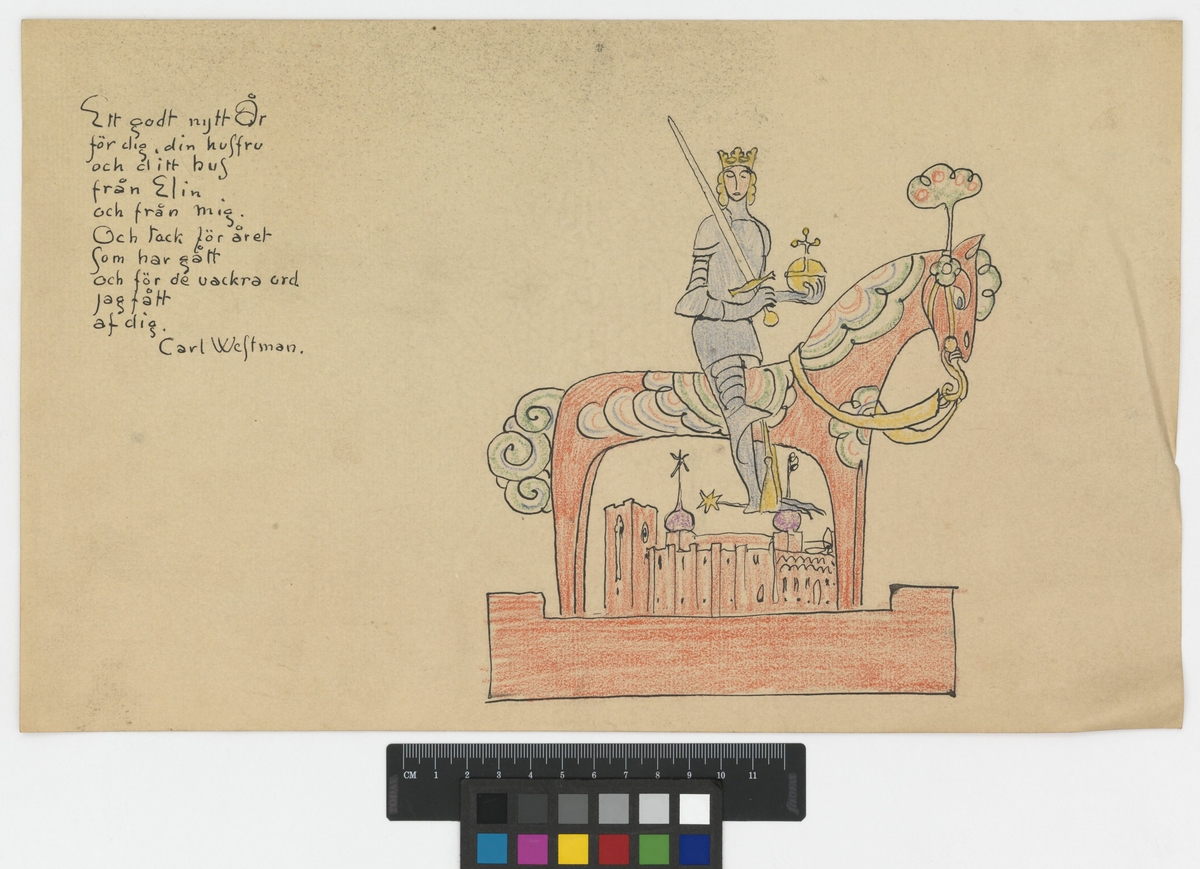 Ett godt nytt År
för dig, din husfru
och ditt hus
från Elin
och från mig.
Och tack för året
Som har gått
och för de vackra ord
jag fått
af dig.
Carl Westman.
CM 1 2 3 4 5 6 7 8 9 10 11